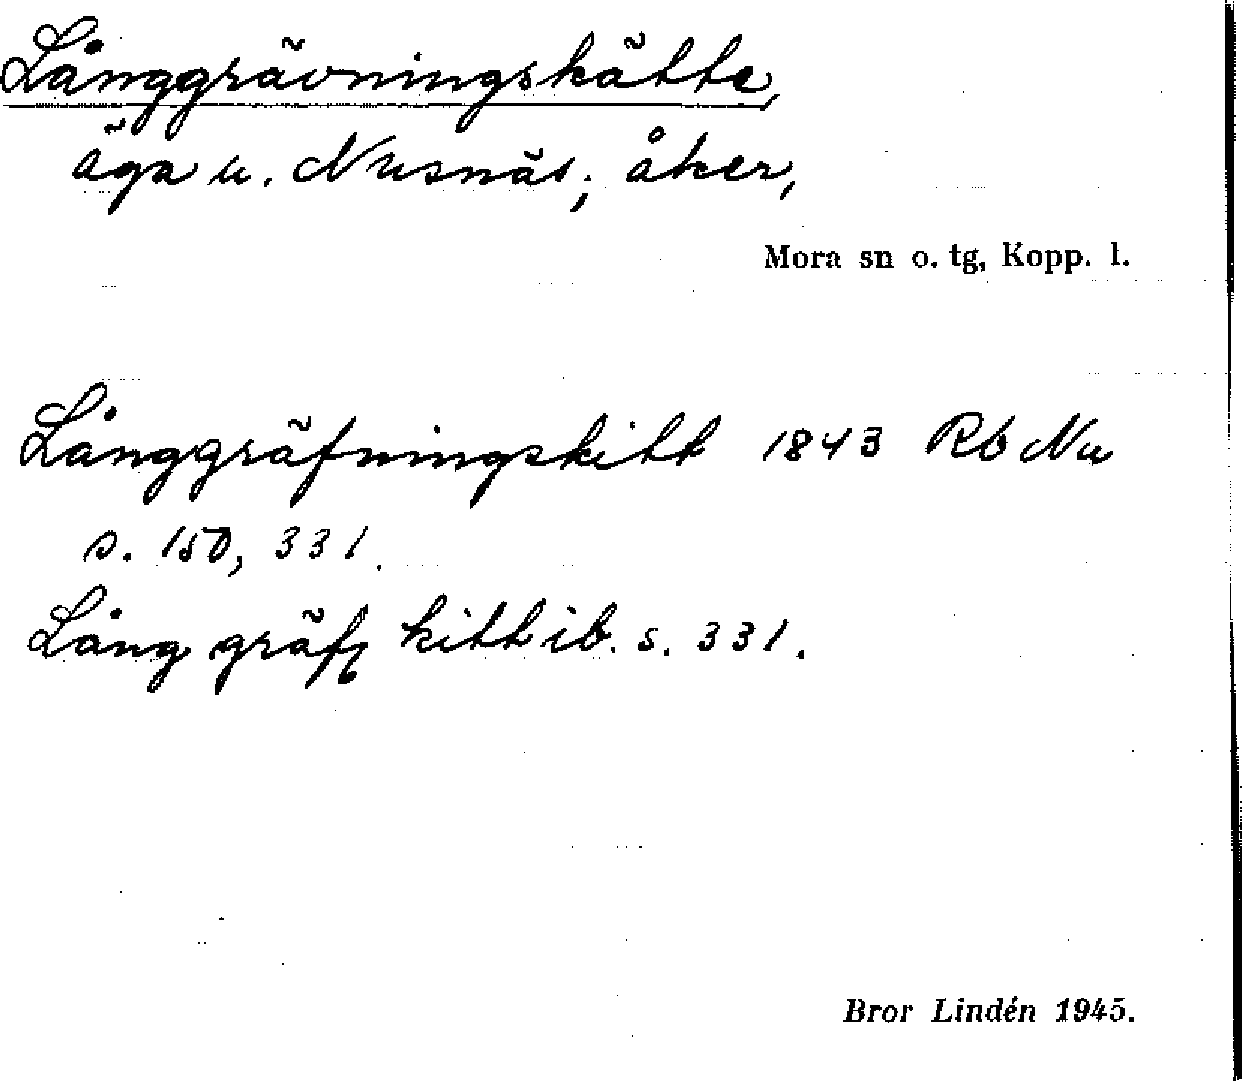 Långgrävningskätte,
äga u. Nusnäs; åker,
Mora sn o. tg, Kopp. l.
Långgräfningskitt 1843 Rb Nu
s. 150, 331.
Lång gräfg kitt ib. s. 331.
Bror Lindén 1945.